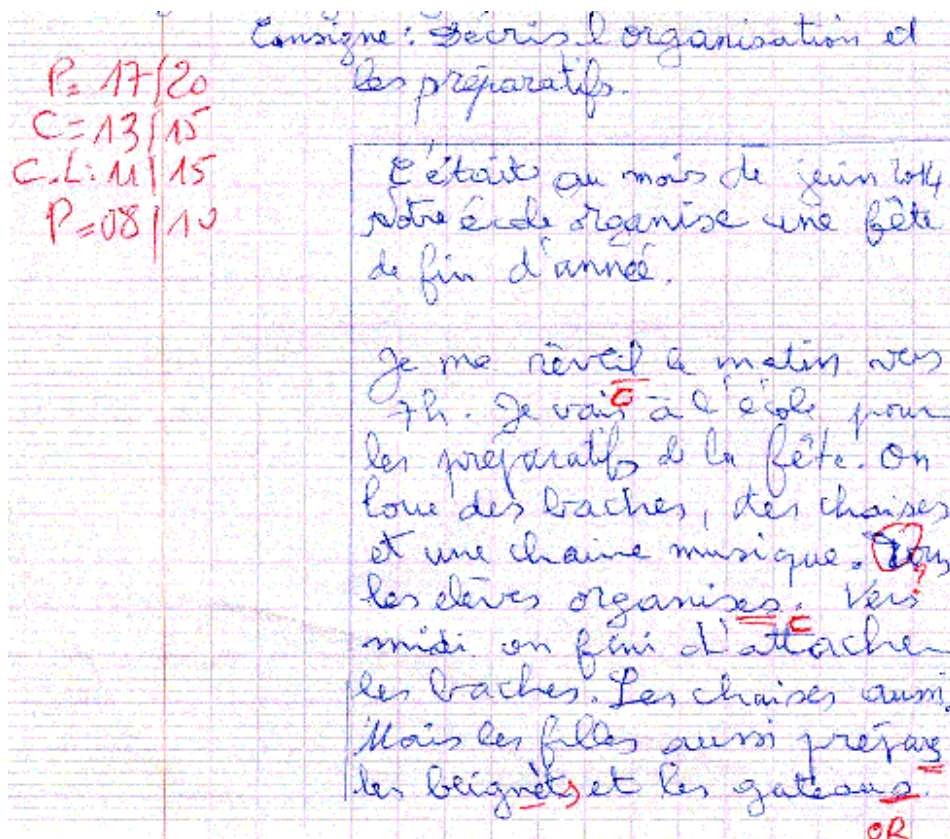 Consigne : Décris l'organisation et
les préparatifs.
P= 17/20
C= 13/15
C.L: 11/15
P=08/10
C'était au mois de juin 2014
notre école organise une fête
de fin d'année.
Je me réveil le matin vers
7h. Je vais à l'école pour
C
les préparatifs de la fête. On
loue des baches, des chaises
et une chaine musique. Tous
?
les elèves organises. Vers
C
midi on fini d'attacher
les baches. Les chaises aussi.
Mais les filles aussi prépare
les beignèts et les gateaux.
OR